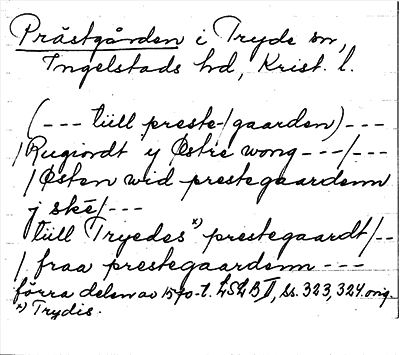 Prästgården i Tryde sn,
Ingelstads hd, Krist. l.
(--- tüll preste-/gaarden) ---
/Rugiordt y Østre wong ---/---
/Østen wid prestegaardenn
j skè/---
tüll Tryedes x) prestegaardt/--
/ fraa prestegaardenn ---
förra delen av 1570-t. LSLB II, ss. 323, 324 orig.
x) Trydis.